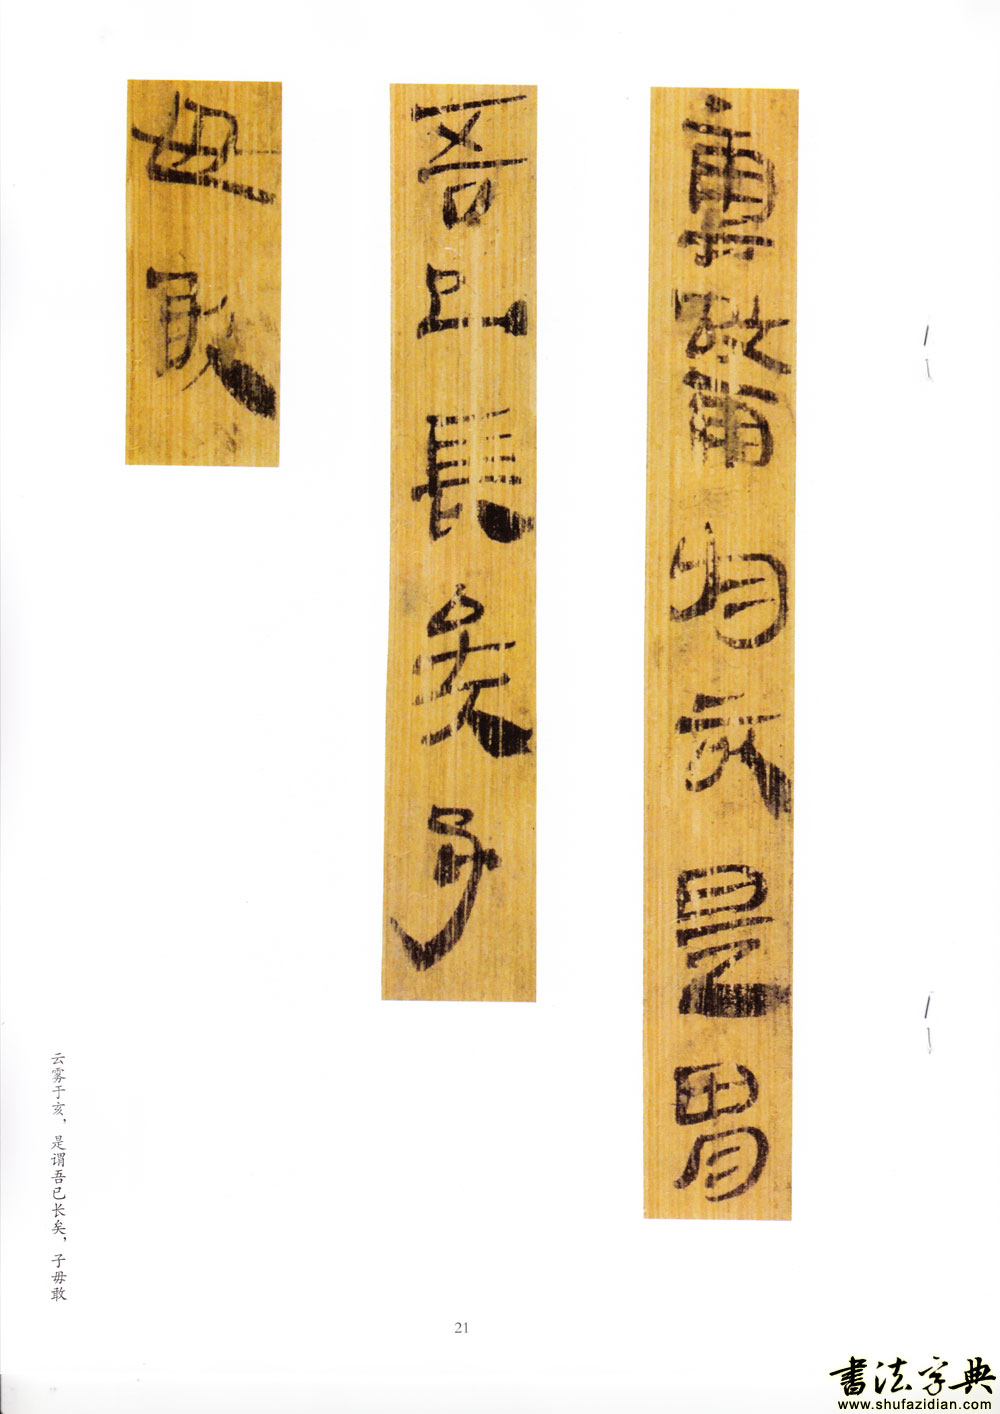 亥是胃
吾已長矣子
毋敢
云雾于亥，是谓吾已长矣，子毋敢
21
书法字典
www.shufazidian.com